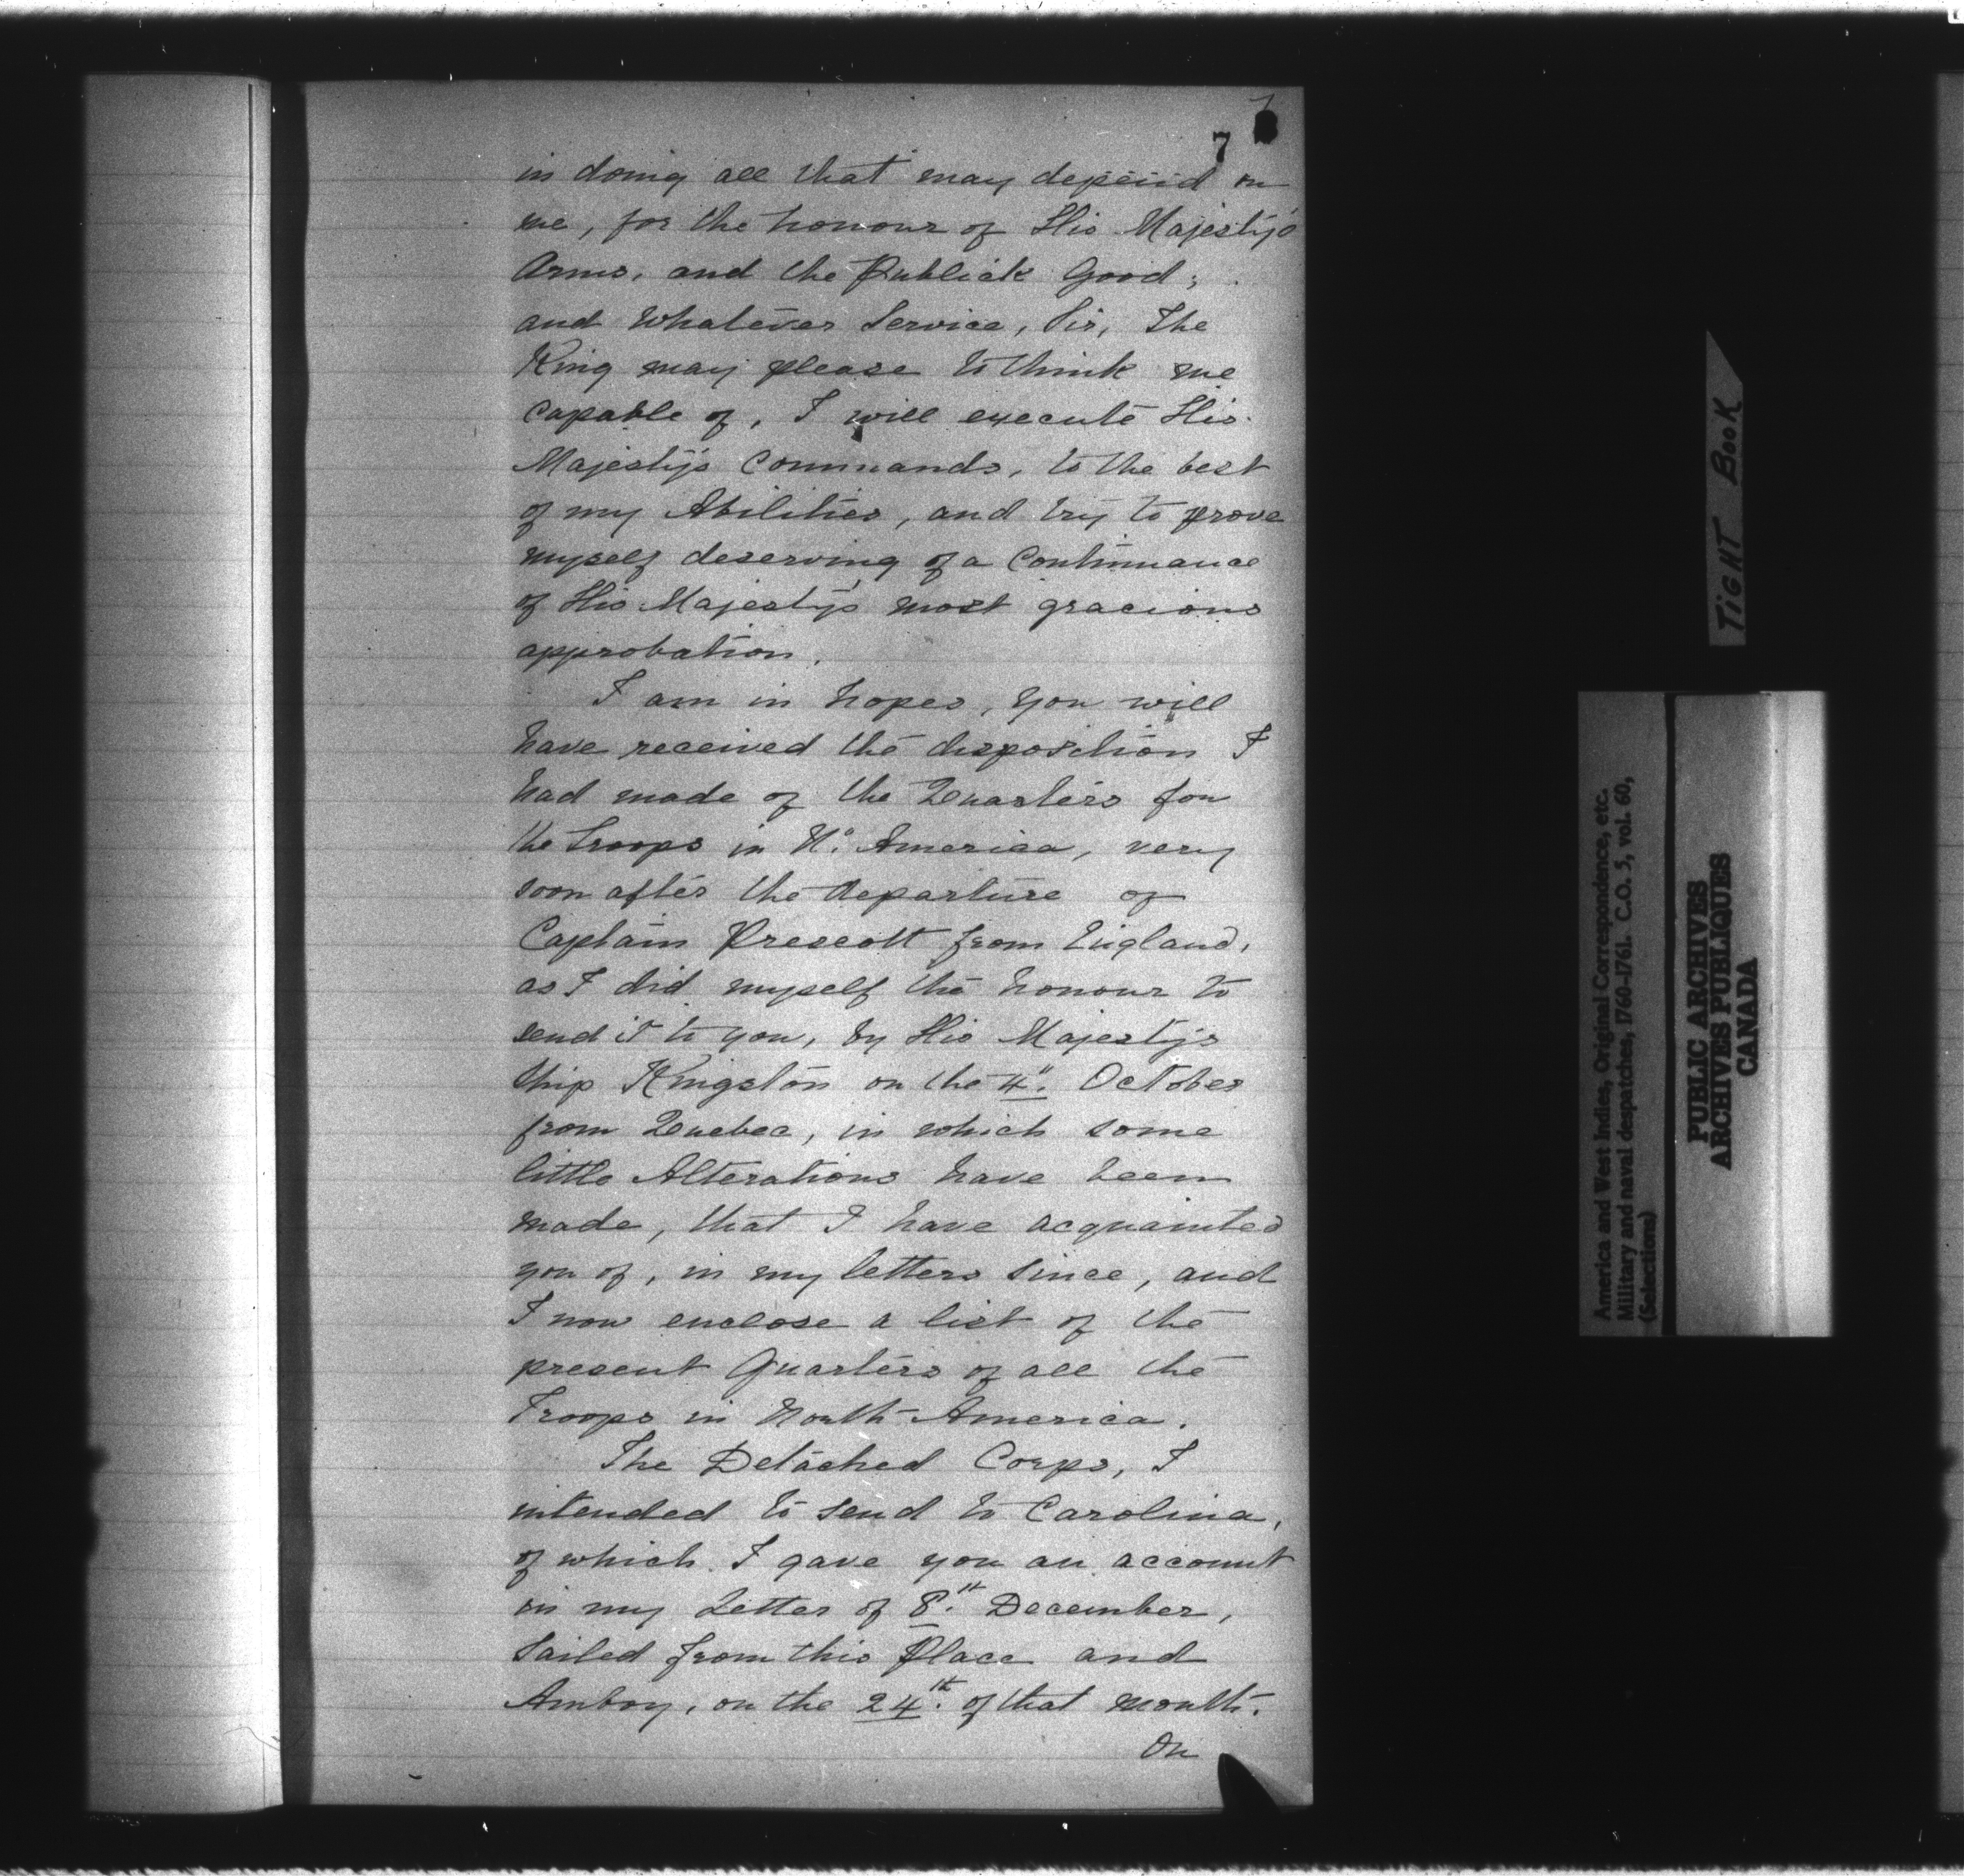 7
in doing all that may depend on
me, for the honour of His Majesty's
Arms, and the Publick Good;
and whatever Service, Sir, The
King may please to think me
capable of, I will execute His
Majesty's Commands, to the best
of my Abilities, and try to prove
myself deserving of a Continuance
of His Majesty's most gracious
approbation.
I am in hopes, you will
have received the disposition I
had made of the Quarters for
the Troops in No. America, very
soon after the departure of
Captain Prescott from England,
as I did myself the honour to
send it to you, by His Majesty's
Ship Kingston on the 4". October
from Quebec, in which some
little Alterations have been
made, that I have acquainted
you of, in my letters since, and
I now enclose a list of the
present Quarters of all the
Troops in North America.
The Detached Corps, I
intended to send to Carolina,
of which I gave you an account
in my Letter of 8th. December,
Sailed from this Place and
Amboy, on the 24th. of that month.
On
TIGHT BOOK
America and West Indies, Original Correspondence, etc.
Military and naval despatches, 1760-1761. C.O. 5, vol. 60,
(Selections)
PUBLIC ARCHIVES
ARCHIVES PUBLIQUES
CANADA